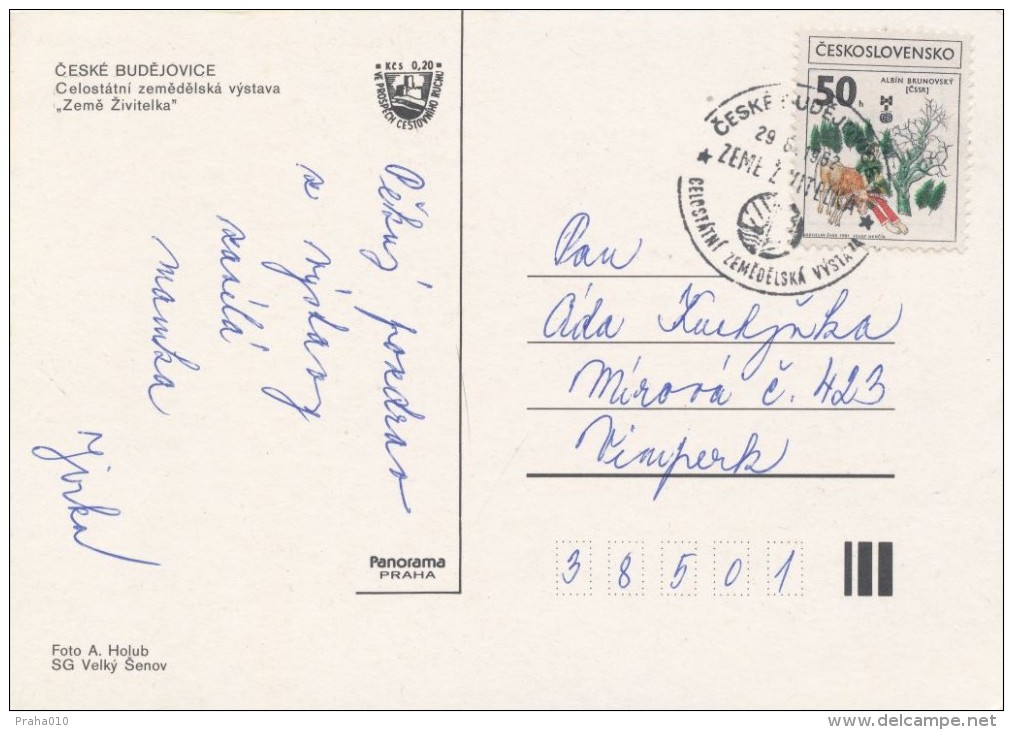 ČESKÉ BUDĚJOVICE
Celostátní zemědělská výstava
„Země Živitelka"
Kčs 0,20
VE PROSPĚCH CESTOVNÍHO RUCHU
Pěkný pozdrav
z výstavy
zasílá
mamka
Jirka
Panorama
PRAHA
Foto A. Holub
SG Velký Šenov
ČESKOSLOVENSKO
50 h
ALBÍN BRUNOVSKÝ
(ČSSR)
ČESKÉ BUDĚJOVICE
ZEMĚ ŽIVITELKA
CELOSTÁTNÍ ZEMĚDĚLSKÁ VÝSTAVA
Pan
Áda Kuchyňka
Mírová č. 423
Vimperk
3 8 5 0 1
Praha010
delcampe.net